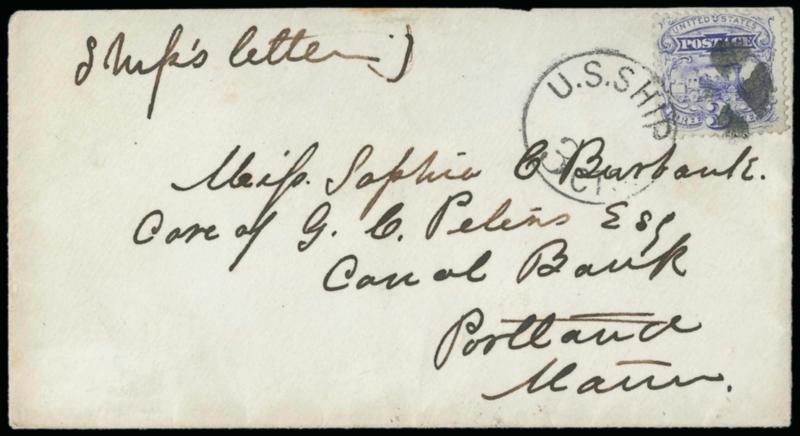 Ship's letter
UNITED STATES
POSTAGE
THREE
U.S. SHIP
3 CTS
Miss. Sophia C Burbank.
Care of G. C. Peters Esq
Canal Bank
Portland
Maine.